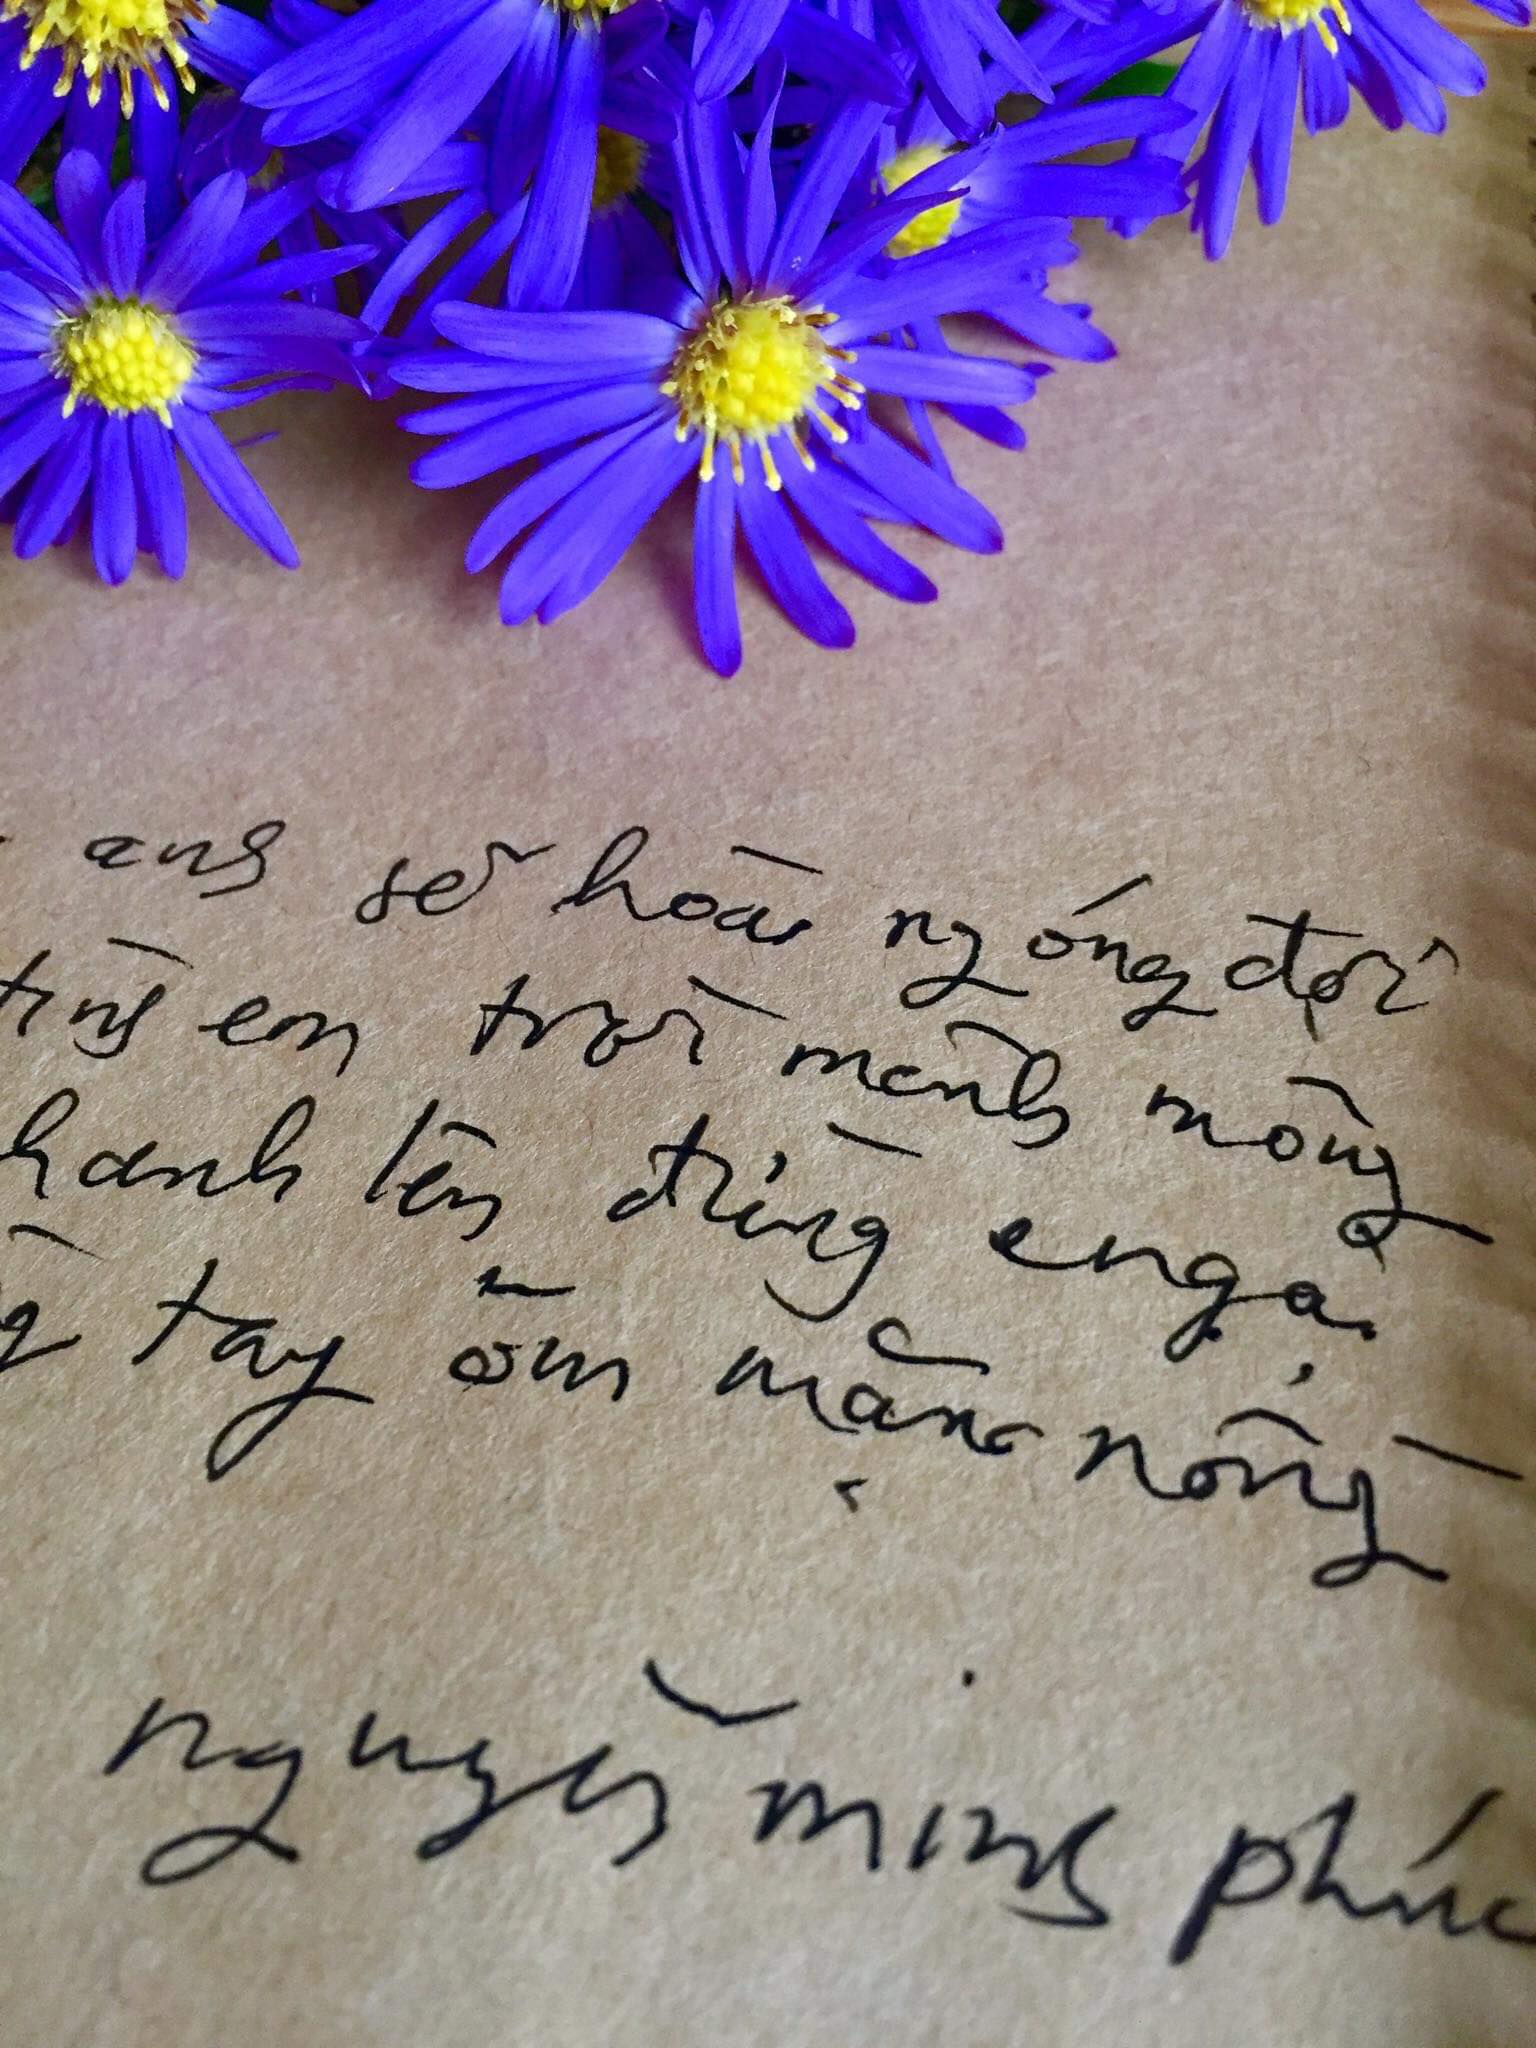 anh sẽ hoài ngóng đợi
tình em trời mênh mông
hanh lên đừng e ngại
tay ôm mặn nồng
Nguyễn Minh Phúc